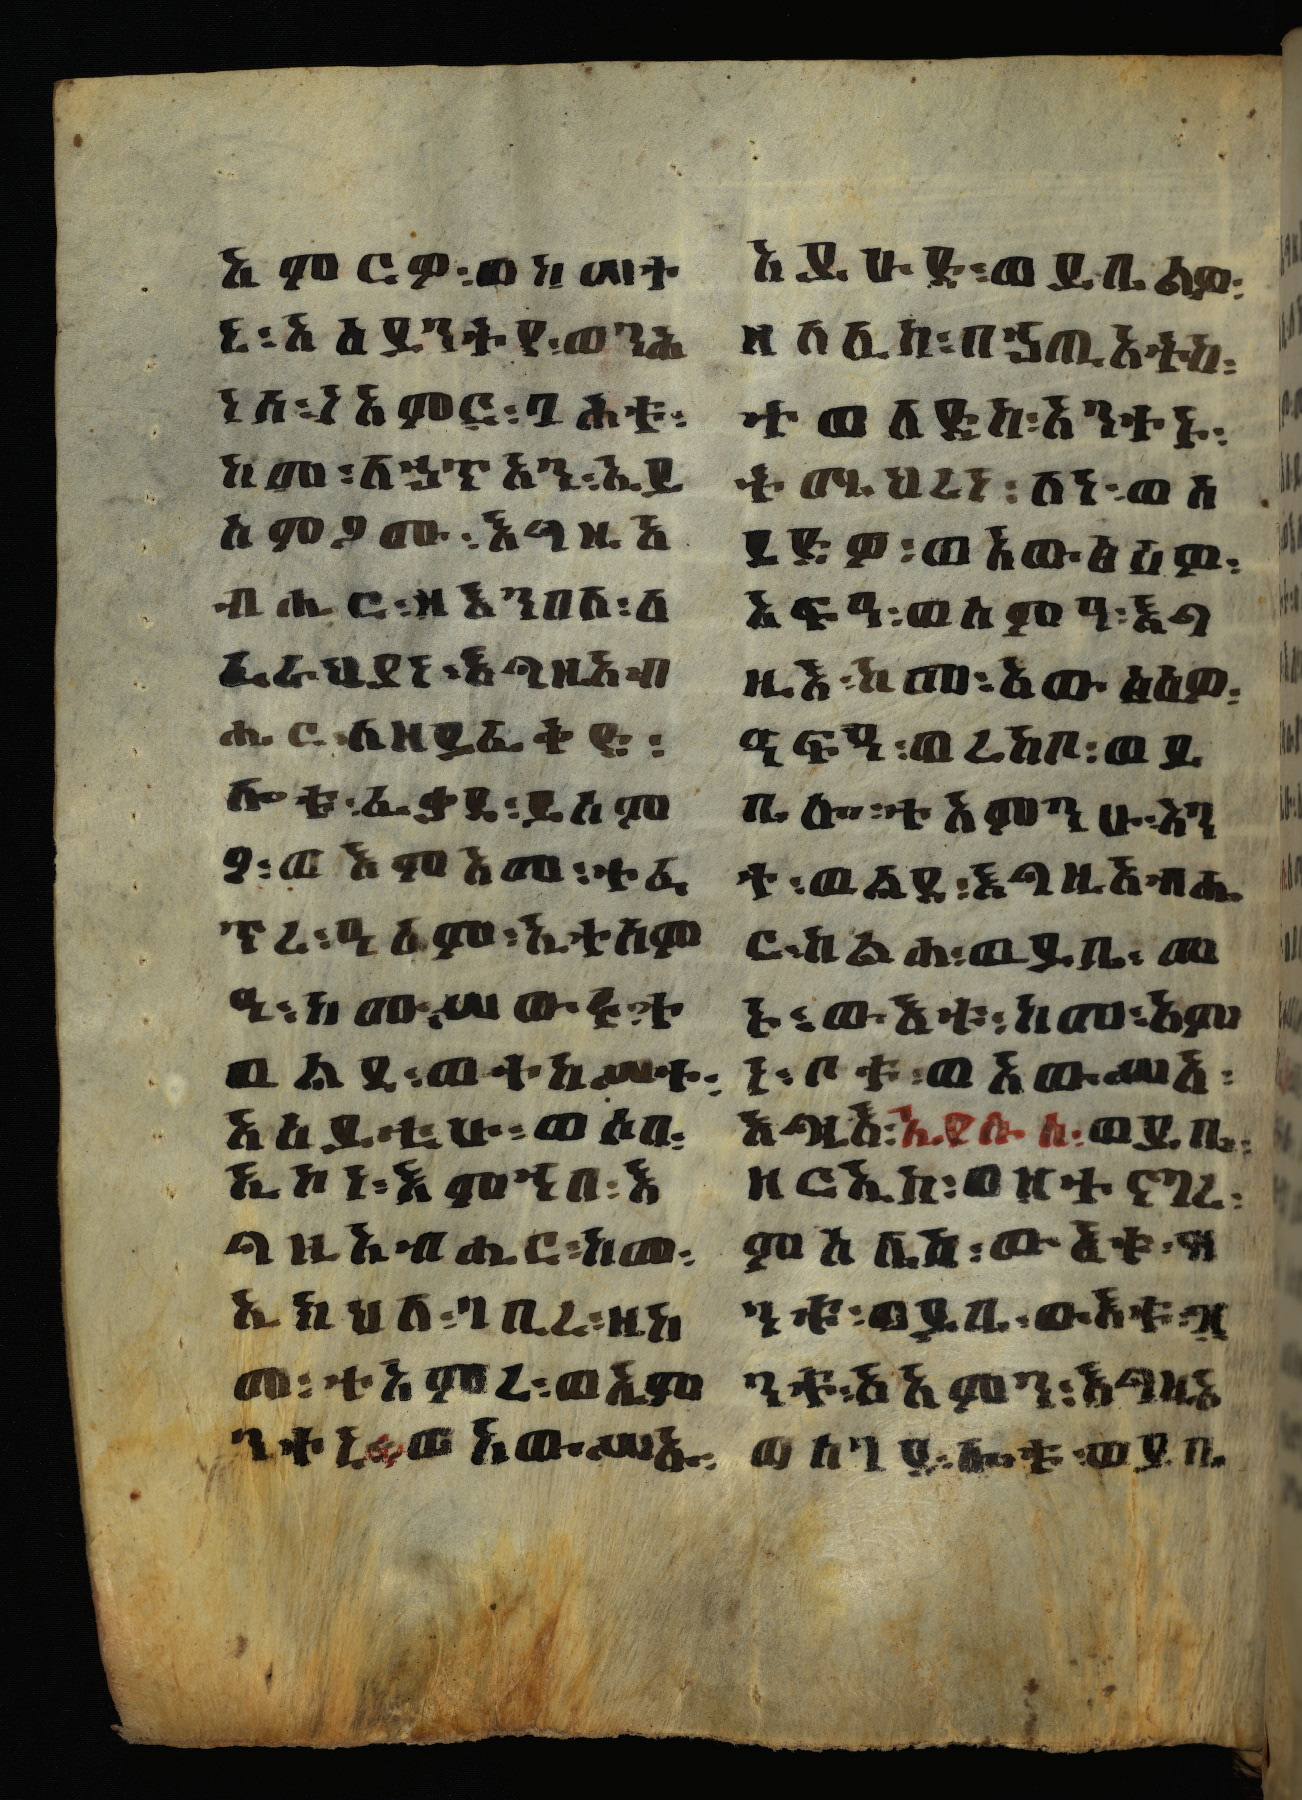 አምርዎ፡ወከሠተ
ነ፡አዕይንተየ፡ወንሕ
ነሰ፡ነአምር፡ገሐቱ፡
ከመ፡ሰኃጥእን፡ኢይ
ሰምዖሙ፡እግዚአ
ብሔር፡ዘእንበለ፡ለ
ፈሪህየ፡እግዚአብ
ሔር፡ለዘይፈቅድ፡
ሎቱ፡ፈቃደ፡ይሰም
ዖ፡ወእምአመ፡ተፈ
ጥረ፡ዓለም፡ኢተሰም
ዓ፡ከመ፡ዘዕውሩ፡ተ
ወልደ፡ወተከሥተ፡
አዕይቲሁ፡ወሶበ፡
ኢኮነ፡እምኀበ፡እ
ግዚአብሔር፡ከመ፡
ኢክህለ፡ገቢረ፡ዘከ
መ፡ተአምረ፡ወኢም
ንተ፡ወአውሥኡ፡
አይሁድ፡ወይቤልዎ፡
ዘለሊከ፡በኃጢአትከ፡
ተወለድከ፡አንተኑ፡
ትሜህረነ፡ለነ፡ወሰ
ደድዎ፡ወአውፅእዎ፡
አፍዓ፡ወሰምዓ፡እግ
ዚእ፡ከመ፡አውፅእዎ፡
ዓፍዓ፡ወረከቦ፡ወይ
ቤሎ፡ተአምንሁ፡አን
ተ፡ወልደ፡እግዚአብሔ
ር፡ክልሐ፡ወይቤ፡መ
ኑ፡ውእቱ፡ከመ፡እም
ነ፡ቦቱ፡ወአውሥአ፡
እግዚእ፡ኢየሱስ፡ወይቤ፡
ዘርኢከ፡ወዘትናገረ፡
ምስሌል፡ውእቱ፡ዝ
ንቱ፡ወይቤ፡ውእቱ፡ዝ
ንቱ፡አአምን፡እግዚአ
ወሰገደ፡ሎቱ፡ወይቤ